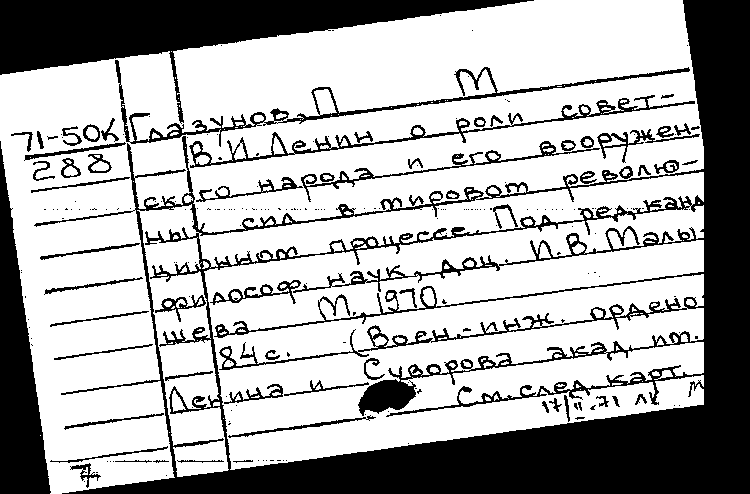 71-50К Глазунов, П М
288 В.И. Ленин о роли совет-
ского народа и его вооружен-
ных сил в мировом револю-
ционном процессе. Под ред. канд
философ. наук, доц. И.В. Малы-
шева М., 1970.
84 с. (Воен.-инж. ордено
Ленина и Суворова акад. им.
См. след. карт.
17/II-71 ЛК М
7